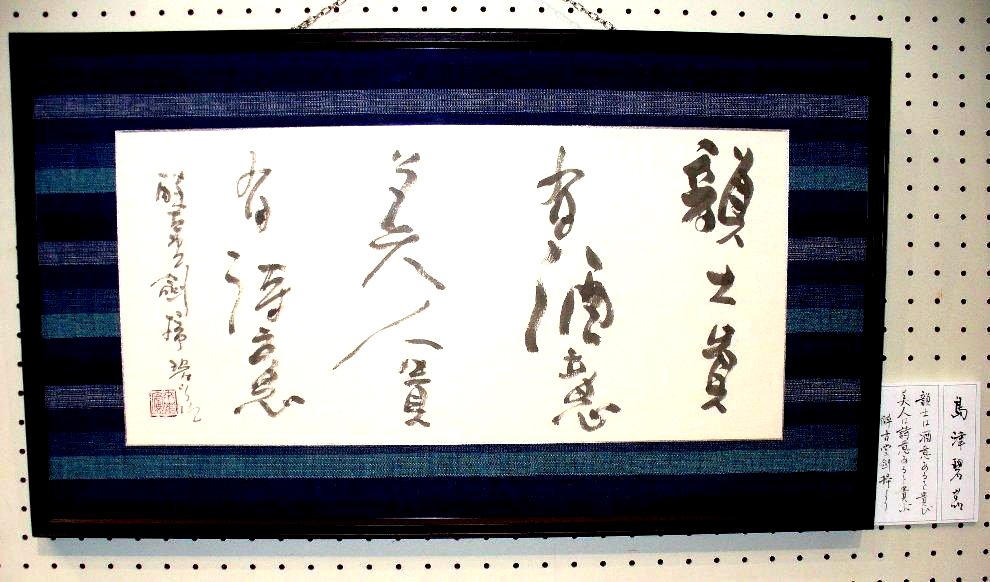 韻士貴
有酒意
美人貴
有詩意
酔古堂劍掃 碧
島津碧
韻士は酒意あるを貴び
美人は詩意あるを貴ぶ
酔古堂剣掃より